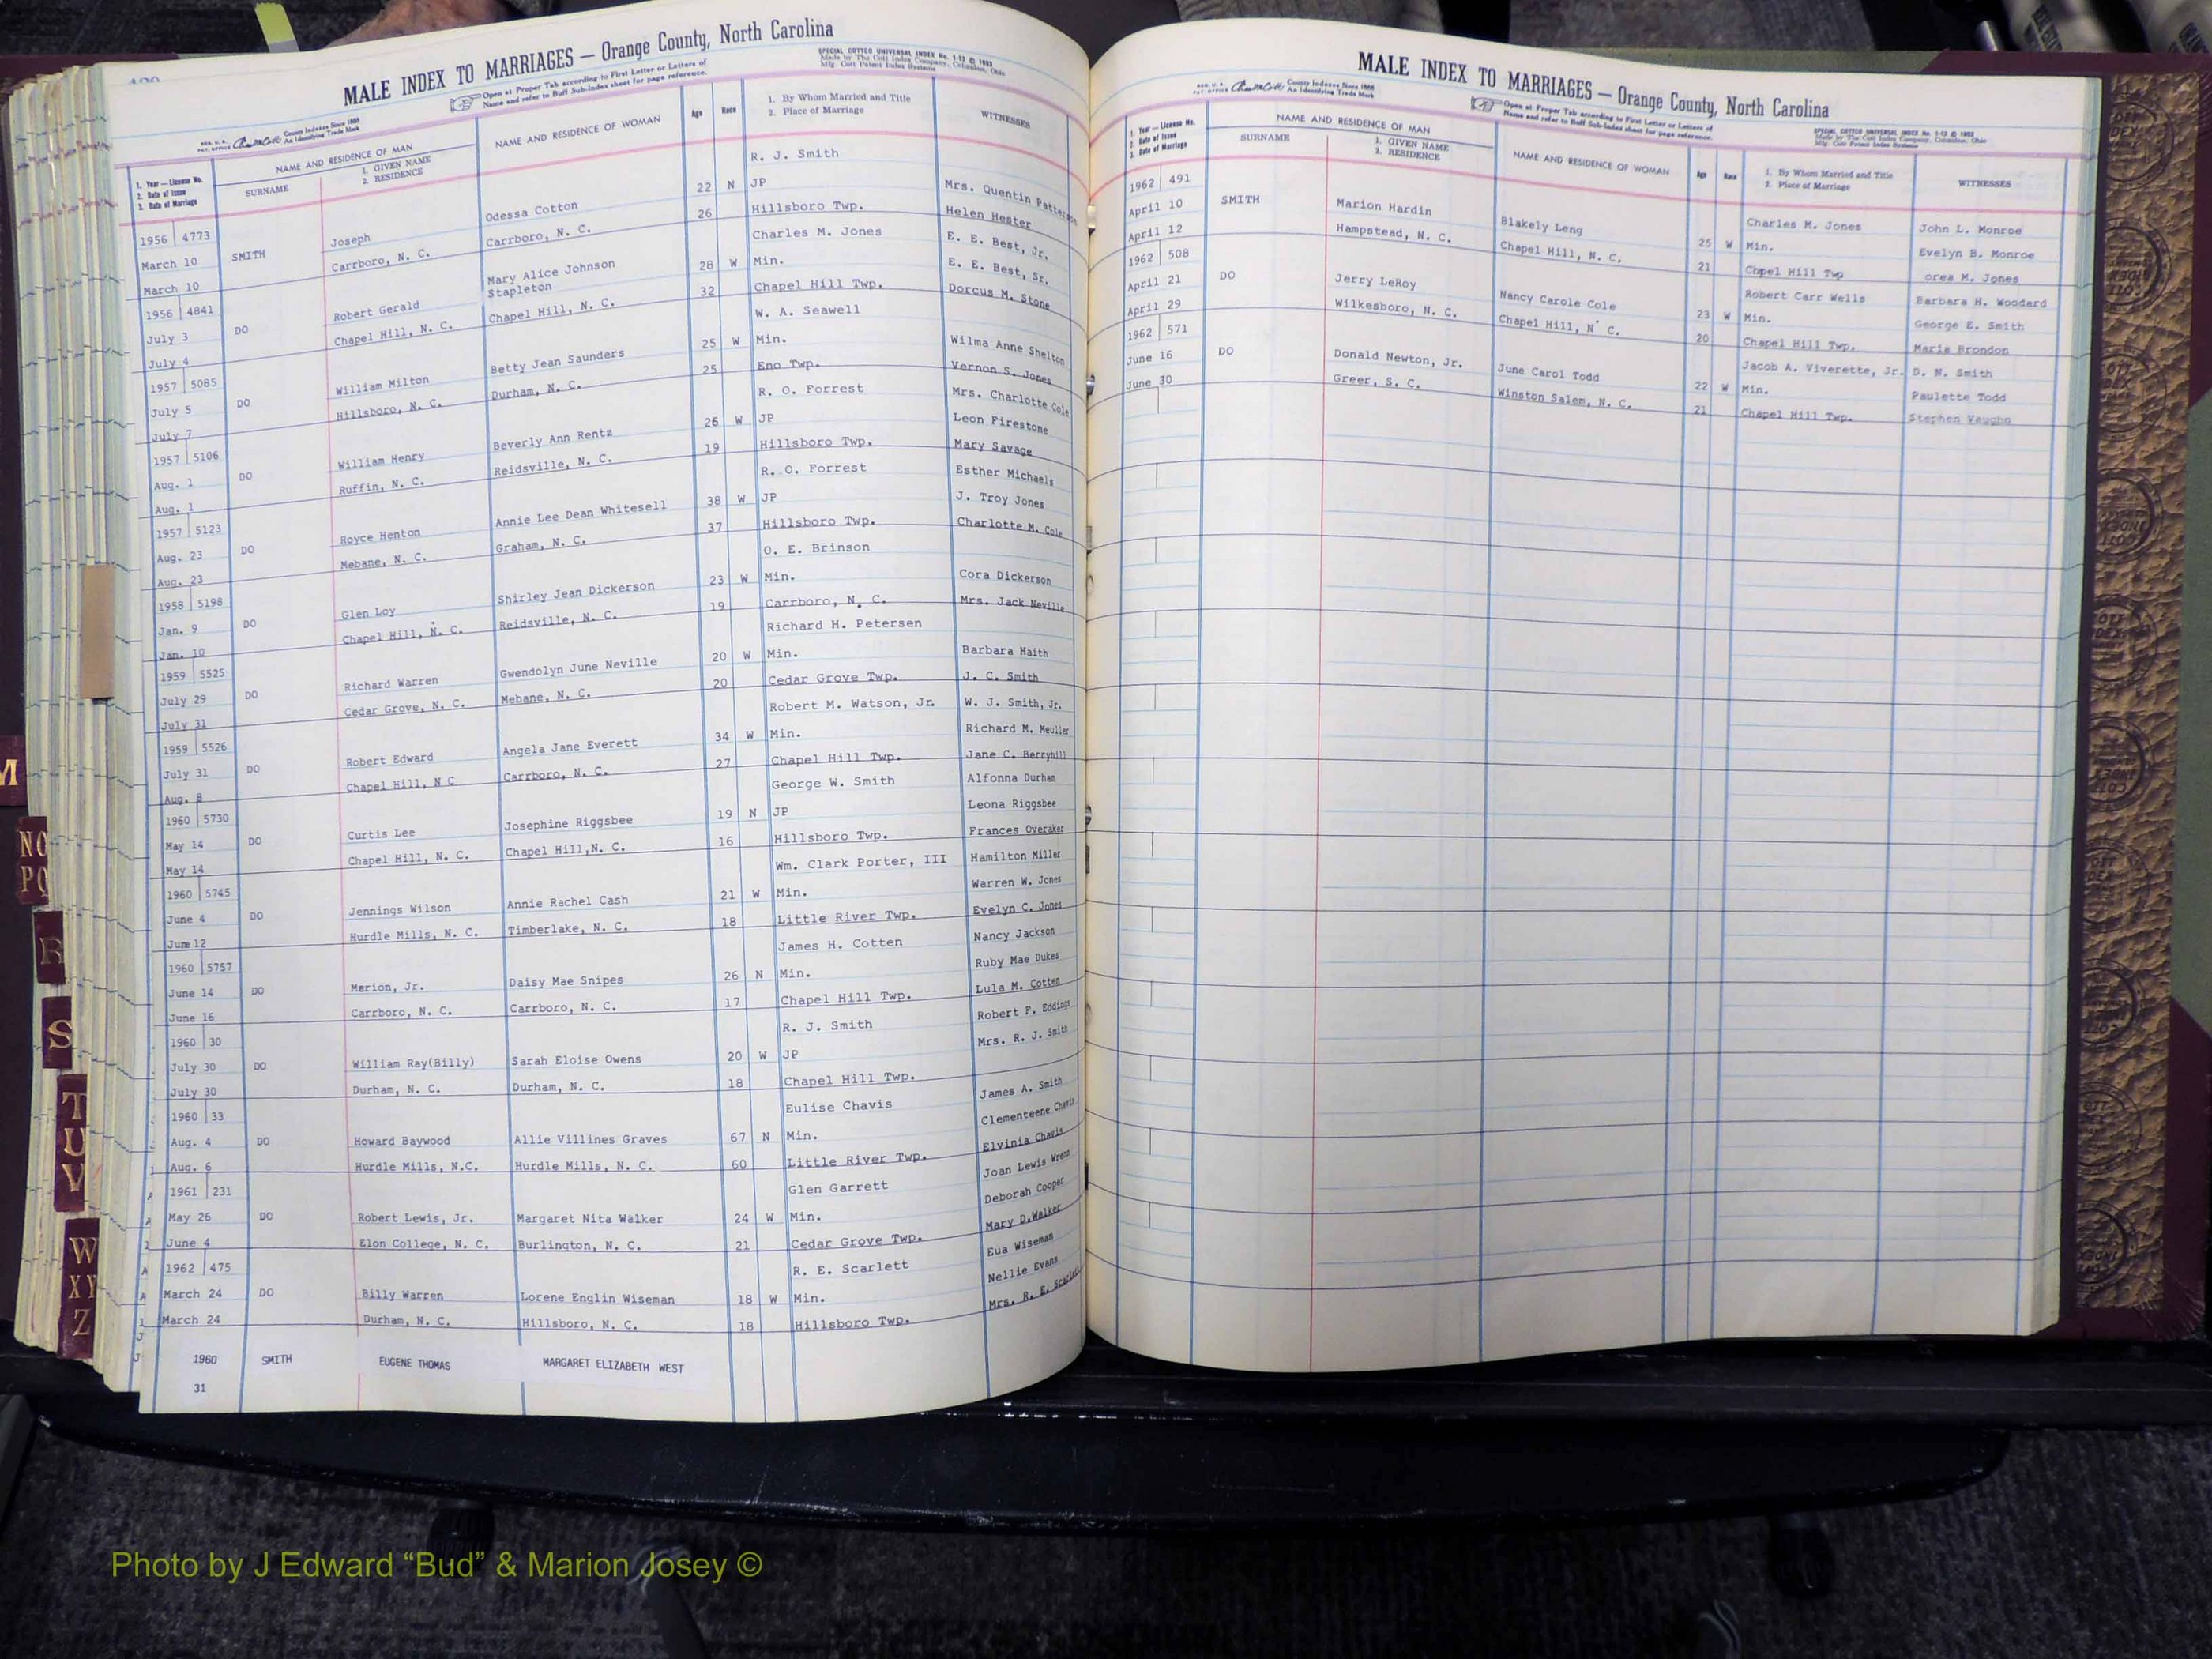 MALE INDEX TO MARRIAGES — Orange County, North Carolina
Open at Proper Tab according to First Letter or Letters of
Name and refer to Buff Sub-Index sheet for page reference.
SPECIAL COTTCO UNIVERSAL INDEX No. 1-12 © 1953
Made by The Cott Index Company, Columbus, Ohio
Mfg. Cott Patent Index Systems
County Indexes Since 1888
An Identifying Trade Mark
1. Year — License No.
2. Date of Issue
3. Date of Marriage
NAME AND RESIDENCE OF MAN
SURNAME
1. GIVEN NAME
2. RESIDENCE
NAME AND RESIDENCE OF WOMAN
Age
Race
1. By Whom Married and Title
2. Place of Marriage
WITNESSES
1956 4773 R. J. Smith
March 10 SMITH Joseph Odessa Cotton 22 N JP Mrs. Quentin Patterson
March 10 Carrboro, N. C. Carrboro, N. C. 26 Hillsboro Twp. Helen Hester
1956 4841 Mary Alice Johnson Charles M. Jones E. E. Best, Jr.
July 3 DO Robert Gerald Stapleton 28 W Min. E. E. Best, Sr.
July 4 Chapel Hill, N. C. Chapel Hill, N. C. 32 Chapel Hill Twp. Dorcus M. Stone
1957 5085 W. A. Seawell
July 5 DO William Milton Betty Jean Saunders 25 W Min. Wilma Anne Shelton
July 7 Hillsboro, N. C. Durham, N. C. 25 Eno Twp. Vernon S. Jones
1957 5106 R. O. Forrest Mrs. Charlotte Cole
Aug. 1 DO William Henry Beverly Ann Rentz 26 W JP Leon Firestone
Aug. 1 Ruffin, N. C. Reidsville, N. C. 19 Hillsboro Twp. Mary Savage
1957 5123 R. O. Forrest Esther Michaels
Aug. 23 DO Royce Henton Annie Lee Dean Whitesell 38 W JP J. Troy Jones
Aug. 23 Mebane, N. C. Graham, N. C. 37 Hillsboro Twp. Charlotte M. Cole
1958 5198 O. E. Brinson
Jan. 9 DO Glen Loy Shirley Jean Dickerson 23 W Min. Cora Dickerson
Jan. 10 Chapel Hill, N. C. Reidsville, N. C. 19 Carrboro, N. C. Mrs. Jack Neville
1959 5525 Richard H. Petersen
July 29 DO Richard Warren Gwendolyn June Neville 20 W Min. Barbara Haith
July 31 Cedar Grove, N. C. Mebane, N. C. 20 Cedar Grove Twp. J. C. Smith
1959 5526 Robert M. Watson, Jr. W. J. Smith, Jr.
July 31 DO Robert Edward Angela Jane Everett 34 W Min. Richard M. Meuller
Aug. 8 Chapel Hill, N C Carrboro, N. C. 27 Chapel Hill Twp. Jane C. Berryhill
1960 5730 George W. Smith Alfonna Durham
May 14 DO Curtis Lee Josephine Riggsbee 19 N JP Leona Riggsbee
May 14 Chapel Hill, N. C. Chapel Hill,N. C. 16 Hillsboro Twp. Frances Overaker
1960 5745 Wm. Clark Porter, III Hamilton Miller
June 4 DO Jennings Wilson Annie Rachel Cash 21 W Min. Warren W. Jones
June 12 Hurdle Mills, N. C. Timberlake, N. C. 18 Little River Twp. Evelyn C. Jones
1960 5757 James H. Cotten Nancy Jackson
June 14 DO Marion, Jr. Daisy Mae Snipes 26 N Min. Ruby Mae Dukes
June 16 Carrboro, N. C. Carrboro, N. C. 17 Chapel Hill Twp. Lula M. Cotten
1960 30 R. J. Smith Robert F. Eddings
July 30 DO William Ray(Billy) Sarah Eloise Owens 20 W JP Mrs. R. J. Smith
July 30 Durham, N. C. Durham, N. C. 18 Chapel Hill Twp.
1960 33 Eulise Chavis James A. Smith
Aug. 4 DO Howard Baywood Allie Villines Graves 67 N Min. Clementeene Chavis
Aug. 6 Hurdle Mills, N.C. Hurdle Mills, N. C. 60 Little River Twp. Elvinia Chavis
1961 231 Glen Garrett Joan Lewis Wrenn
May 26 DO Robert Lewis, Jr. Margaret Nita Walker 24 W Min. Deborah Cooper
June 4 Elon College, N. C. Burlington, N. C. 21 Cedar Grove Twp. Mary D.Walker
1962 475 R. E. Scarlett Eua Wiseman
March 24 DO Billy Warren Lorene Englin Wiseman 18 W Min. Nellie Evans
March 24 Durham, N. C. Hillsboro, N. C. 18 Hillsboro Twp. Mrs. R. E. Scarlett
1960 SMITH EUGENE THOMAS MARGARET ELIZABETH WEST
31
MALE INDEX TO MARRIAGES — Orange County, North Carolina
Open at Proper Tab according to First Letter or Letters of
Name and refer to Buff Sub-Index sheet for page reference.
SPECIAL COTTCO UNIVERSAL INDEX No. 1-12 © 1953
Made by The Cott Index Company, Columbus, Ohio
Mfg. Cott Patent Index Systems
County Indexes Since 1888
An Identifying Trade Mark
1. Year — License No.
2. Date of Issue
3. Date of Marriage
NAME AND RESIDENCE OF MAN
SURNAME
1. GIVEN NAME
2. RESIDENCE
NAME AND RESIDENCE OF WOMAN
Age
Race
1. By Whom Married and Title
2. Place of Marriage
WITNESSES
1962 491 Charles M. Jones John L. Monroe
April 10 SMITH Marion Hardin Blakely Leng 25 W Min. Evelyn B. Monroe
April 12 Hampstead, N. C. Chapel Hill, N. C. 21 Chpel Hill Twp orea M. Jones
1962 508 Robert Carr Wells Barbara H. Woodard
April 21 DO Jerry LeRoy Nancy Carole Cole 23 W Min. George E. Smith
April 29 Wilkesboro, N. C. Chapel Hill, N C. 20 Chapel Hill Twp. Maria Brondon
1962 571 Jacob A. Viverette, Jr. D. N. Smith
June 16 DO Donald Newton, Jr. June Carol Todd 22 W Min. Paulette Todd
June 30 Greer, S. C. Winston Salem, N. C. 21 Chapel Hill Twp. Stephen Vaughn
M
NO
PQ
R
S
T
U
V
W
XY
Z
Photo by J Edward “Bud” & Marion Josey ©